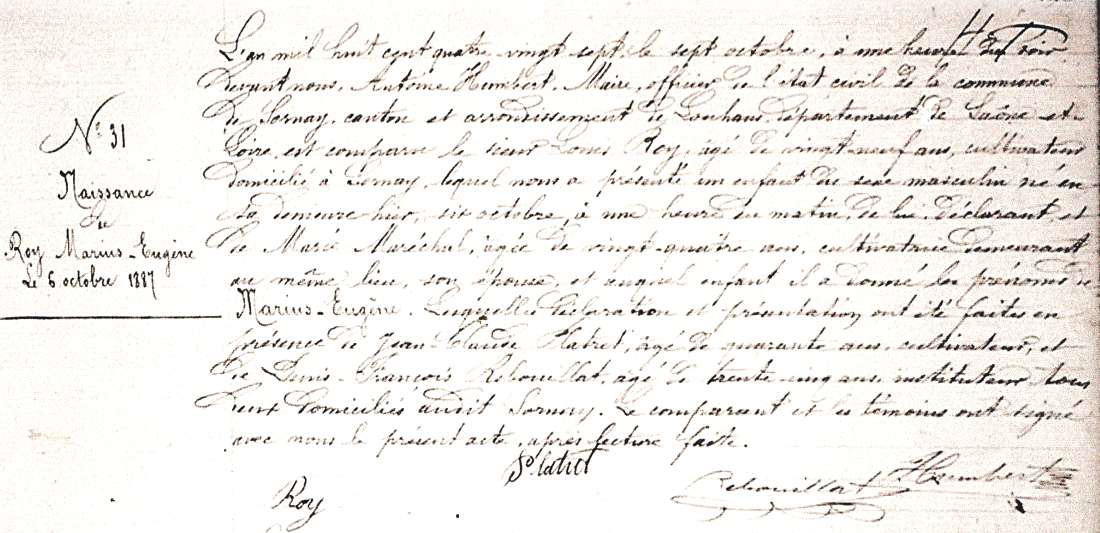 N° 31
Naissance
de
Roy Marius-Eugène
Le 6 octobre 1887
L'an mil huit cent quatre-vingt sept, le sept octobre, à une heure du soir
devant nous, Antoine Humbert, Maire, officier de l'état civil de la commune
de Sornay, canton et arrondissement de Louhans, département de Saône-et-
Loire, est comparu le sieur Louis Roy, âgé de vingt-neuf ans, cultivateur
domicilié à Sornay, lequel nous a présenté un enfant du sexe masculin né en
sa demeure hier, six octobre, à une heure du matin, de lui, déclarant, et
de Marie Maréchal, âgée de vingt-quatre ans, cultivatrice demeurant
au même lieu, son épouse, et auquel enfant il a donné les prénoms de
Marius-Eugène. Lesquelles déclaration et présentation ont été faites en
présence de Jean-Claude Platret, âgé de quarante ans, cultivateur, et
de Denis-François Rebouillat, âgé de trente-cinq ans, instituteur tous
deux domiciliés audit Sornay. Le comparant et les témoins ont signé
avec nous le présent acte, après lecture faite.
Platret
Roy
Rebouillat
Humbert